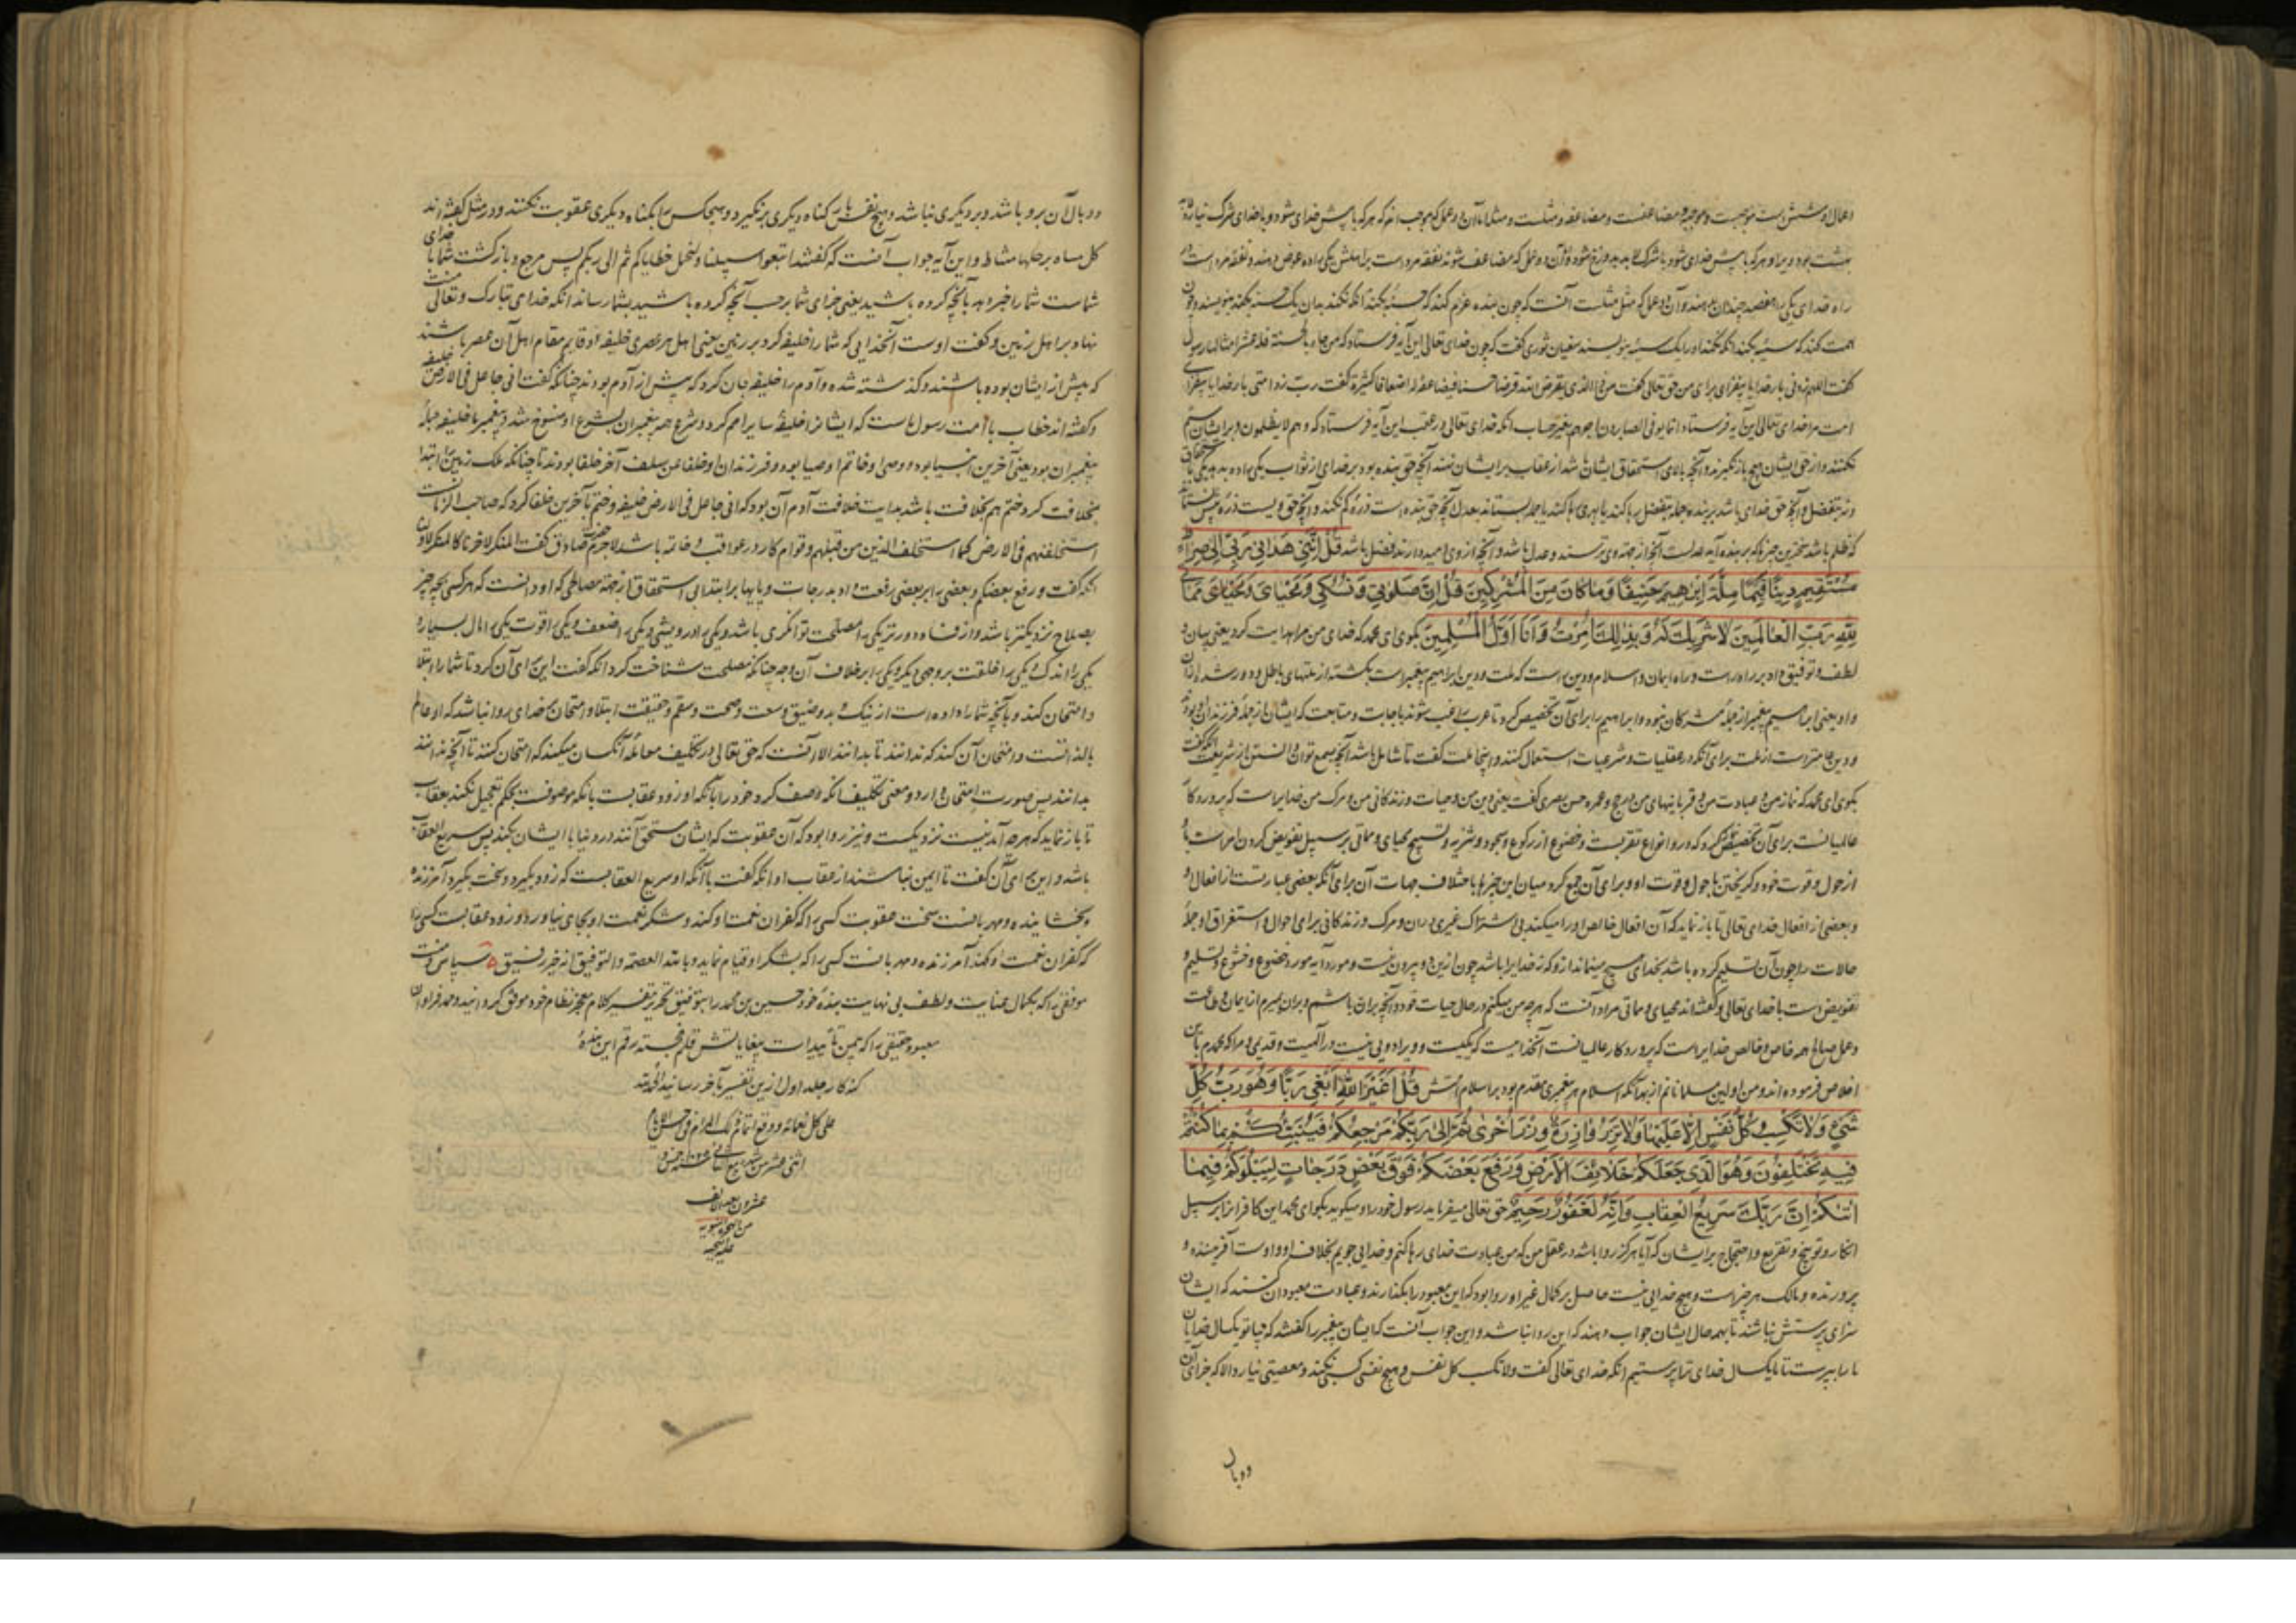 اعمال او شش است موجبست و موجبه و مضاعفست و مضاعفه و مثلست و مثل اما آن دو عمل که موجب اند هر که با پیش خدای شود و با خدای شرک نیاورده
بهشت بود ویرا و هر که با پیش خدای شود با شرک دوزخ شود و آن دو عمل که مضاعف شوند نفقه مرد است بر اهلش یکی را ده عوض دهند و نفقه مرد است در
راه خدای یکی را هفصد چندان دهند و آن دو عمل که مثل مثلست آنست که چون بنده عزم کند که حسنه بکند آنکه نکند بدان یک حسنه بنویسند و چون
همت کند که سیئه بکند آنکه بکند او را یک سیئه بنویسند سفیان ثوری گفت که چون خدای تعالی این آیه فرستاد که من جاء بالحسنة فله عشر امثالها رسول
گفت اللهم زدنی بار خدایا بیفزای برای من حق تعالی گفت من ذا الذی یقرض الله قرضا حسنا فیضاعفه له اضعافا کثیرة گفت رب زد امتی بار خدایا بیفزای
امت مرا خدای تعالی این آیه فرستاد انما یوفی الصابرون اجرهم بغیر حساب آنکه خدای تعالی در عقب این آیه فرستاد که و هم لا یظلمون و بر ایشان ستم
نکنند و از حق ایشان هیچ باز نگیرند و آنچه بالای استحقاق ایشان باشد از عقاب بر ایشان ننهند آنچه حق بنده بود بر خدای از ثواب یکی را ده بدهد
و آنچه حق خدای باشد بر بنده جمله بتفضل رها کند یا بهری رها کند یا جمله بستاند بعدل آنچه حق بنده است ذره کم نکند و آنچه حق ویست ذره بیش نستاند
که ظلم باشد قل اننی هدانی ربی الی صراط
مستقیم دینا قیما ملة ابراهیم حنیفا وما کان من المشرکین قل ان صلوتی ونسکی ومحیای ومماتی
لله رب العالمین لا شریک له وبذلک امرت وانا اول المسلمین بگوی ای محمد که خدای من مرا هدایت کرد یعنی بیان و
لطف و توفیق داد بر راه راست و راه ایمان و اسلام و دین راست که ملت و دین ابراهیم پیغمبر است بگشته از ملتهای باطل و دور شده ازان
و او یعنی ابراهیم پیغمبر از جمله مشرکان نبود و ابراهیم را برای آن تخصیص کرد تا عرب راغب شوند باجابت و متابعت که ایشان از جمله فرزندان وی بودند
و دین عامتر است از ملت برای آنکه در عقلیات و شرعیات استعمال کنند و اینجا ملت گفت تا شامل باشد آنچه بسمع توان دانستن از شریعت آنکه گفت
بگوی ای محمد که نماز من و عبادت من و قربانیهای من و حج و عمره حسن بصری گفت یعنی دین من و حیات و زندگانی من و مرگ من خدایراست که پروردگار
عالمیانست برای آن تخصیص کرد که درو انواع تقربست و خضوع از رکوع و سجود و تنزیه و تسبیح محیای و مماتی بر سبیل تفویض کردن امر است با
از حول و قوت خود و گریختن با حول و قوت او و برای آن جمع کرد میان این چیزها باختلاف جهات آن برای آنکه بعضی عبارتست از افعال او
و بعضی از افعال خدای تعالی تا باز نماید که آن افعال خالص او را میکند بی اشتراک غیری دران و مرگ و زندگانی برای احوال و استغراق او جمله
حالات را چون آن تسلیم کرده باشد بخدای هیچ نمیماند از و که نه خدایرا باشد چون ازین دو بیرون نیست و مورد آیه مورد خضوع و خشوع و تسلیم و
تفویض است با خدای تعالی و گفته‌اند محیای و مماتی مراد آنست که هرچه من میکنم در حال حیات خود و آنچه بران باشم و بران بمیرم از ایمان و طاعت
و عمل صالح همه خاص و خالص خدایراست که پروردگار عالمیانست آنخدایست که یکیست و ویرا دویی نیست در الهیت و قدیمی و مرا که محمدم باین
اخلاص فرموده اند و من اولین مسلمانانم از بهر آنکه اسلام هر پیغمبری مقدم بود بر اسلام امتش قل اغیر الله ابغی ربا وهو رب کل
شیء ولا تکسب کل نفس الا علیها ولا تزر وازرة وزر اخری ثم الی ربکم مرجعکم فینبئکم بما کنتم
فیه تختلفون وهو الذی جعلکم خلائف الارض ورفع بعضکم فوق بعض درجات لیبلوکم فیما
اتیکم ان ربک سریع العقاب وانه لغفور رحیم حق تعالی میفرماید رسول خود را و میگوید بگو ای محمد این کافرانرا بر سبیل
انکار و توبیخ و تقریع و احتجاج بر ایشان که آیا هرگز روا باشد در عقل من که من عبادت خدای رها کنم و خدایی جویم بخلاف او و اوست آفریننده و
پرورنده و مالک هر چیز است و هیچ خدایی نیست حاصل بر کمال غیر او روا بود که این معبود را بگذارند و عبادت معبودان کنند که ایشان
سزای پرستش نباشند تا بهمه حال ایشان جواب دهند که این روا نباشد و این جواب آنست که ایشان پیغمبر را گفتند که بیا تو یکسال خدایان
ما را بپرست تا ما یکسال خدای ترا پرستیم آنکه خدای تعالی گفت ولا تکسب کل نفس و هیچ نفسی کسبی نکند و معصیتی نیارد الا که جزای آن
و وبال
و وبال آن برو باشد و بر دیگری نباشد و هیچ نفس بار گناه دیگری بر نگیرد و هیچکس را بگناه دیگری عقوبت نکنند و در مثل گفته‌اند
کل شاه برجلها مناط و این آیه جواب آنست که گفتند اتبعوا سبیلنا ولنحمل خطایاکم ثم الی ربکم پس مرجع و بازگشت شما با خدای
شماست شما را خبر دهد بآنچه کرده باشید یعنی جزای شما بر حسب آنچه کرده باشید بشما رساند آنکه خدای تبارک و تعالی منت
نهاد بر اهل زمین و گفت اوست آنخدایی که شما را خلیفه کرد بر زمین یعنی اهل هر عصری خلیفه او قایم مقام اهل آن عصر باشند
که پیش از ایشان بوده باشند و گذشته شده و آدم را خلیفه جان کرد که پیش از آدم بودند چنانکه گفت انی جاعل فی الارض خلیفه
و گفته اند خطاب با امت رسول ماست که ایشانرا خلیفه سایر امم کرد و شرع همه پیغمبران بشرع او منسوخ شد و پیغمبر ما خلیفه جمله
پیغمبران بود یعنی آخرین انبیا بود و وصی او خاتم اوصیا بود و فرزندان او خلفا عن سلف آخر خلفا بودند تا چنانکه ملک زمین را ابتدا
بخلافت کرد ختم هم بخلافت باشد بدایت خلافت آدم آن بود که انی جاعل فی الارض خلیفه و ختم بآخرین خلفا کرد که صاحب الزمانست
لیستخلفنهم فی الارض کما استخلف الذین من قبلهم و قوام کار در عواقب و خاتمه باشد لاجرم صادق گفت المنکر لآخرنا کالمنکر لاولنا
آنکه گفت و رفع بعضکم و بعضی را بر بعضی رفعت داد بدرجات و پایها برا ابتدا بی استحقاق از جهة مصالحی که او دانست که هر کسی بچه چیز
بصلاح نزدیکتر باشد و از فساد دورتر یکی را مصلحت توانگری باشد و یکی را درویشی و یکی را ضعف و یکی را قوت یکی را مال بسیار و
یکی را اندک و یکی را خلقت بر وجهی و یکی را بر خلاف آن وجه چنانکه مصلحت شناخت کرد آنکه گفت این برای آن کرد تا شما را ابتلا
و امتحان کند بآنچه شما را داده است از نیک و بد و ضیق و سعت و صحت و سقم و حقیقت ابتلا و امتحان بر خدای روا نباشد که او عالم
بالذاتست و امتحان آن کند که نداند تا بداند الا آنست که حق تعالی در تکلیف معامله آنکسان میکند که امتحان کنند تا آنچه ندانند
بدانند پس صورت امتحان دارد و معنی تکلیف آنکه وصف کرد خود را بآنکه او زود عقابست بآنکه موصوفست بحکم تعجیل نکند بعقاب
تا باز نماید که هرچه آمدنیست نزدیکست و نیز روا بود که آن عقوبت که ایشان مستحق آنند در دنیا با ایشان بکند پس سریع العقاب
باشد و این برای آن گفت تا ایمن نباشند از عقاب او آنکه گفت با آنکه او سریع العقابست که زود بگیرد و سخت بگیرد آمرزنده
و بخشاینده و مهربانست سخت عقوبت کسی را که کفران نعمت او کند و شکر نعمت او بجای نیاورد و زود عقابست کسی را
که کفران نعمت او کند آمرزنده و مهربانست کسی را که بشکر او قیام نماید و بالله العصمة والتوفیق انه خیر رفیق سپاس و منت
موفقی را که بکمال عنایت و لطف بی نهایت بنده خود حسین بن محمد را بتوفیق تحریر تفسیر کلام معجز نظام خود موفق گردانید و حمد فراوان
معبود حقیقی را که بیمن تأییدات بیغایاتش قلم خجسته رقم این بنده
کنه کار جلد اول ازین تفسیر بآخر رسانید الحمد لله
علی کل نعمائه و وقع اتمام ذلک المرام فی
اثنی عشر من شهر ربیع الثانی سنه خمس و
عشرون بعد الف
من الهجرة النبویه
علیه التحیه